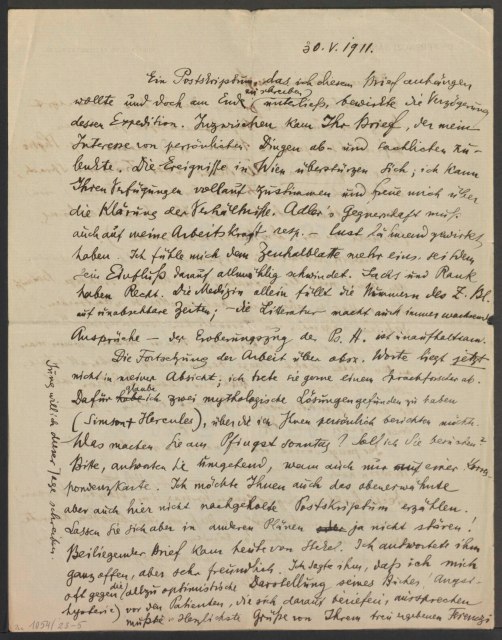 30. V. 1911.
Ein Postskriptum, das ich diesem Brief anhängen
wollte und doch am Ende zu schreiben unterließ, bewirkte die Verzögerung
dessen Expedition. Inzwischen kam Ihr Brief, der mein
Interesse von persönlichen Dingen ab- und sachlichen zu-
lenkte. Die Ereignisse in Wien überstürzen sich; ich kann
Ihren Verfügungen vollauf zustimmen und freue mich über
die Klärung der Verhältnisse. Adler's Gegnerschaft muß
auch auf meine Arbeitskraft resp. – Lust lähmend gewirkt
haben. Ich fühle mich dem Zentralblatte mehr eins, seitdem
sein Einfluß darauf allmählig schwindet. Sachs und Rank
haben Recht. Die Medizin allein füllt die Nummern des Z. Bl.
auf unabsehbare Zeiten; – die Literatur macht auch immer wachsende
Ansprüche – der Eroberungszug der Ps. A. ist unaufhaltsam.
Die Fortsetzung der Arbeit über obsz. Worte liegt jetzt
nicht in meiner Absicht; ich trete sie gerne einem Sprachforscher ab.
Dafür glaube ich zwei mythologische Lösungen gefunden zu haben
(Simson & Hercules), über die ich Ihnen persönlich berichten möchte.
Was machen Sie am Pfingstsonntag? Soll ich Sie besuchen?
Bitte, antworten Sie umgehend, wenn auch nur auf einer Korres-
pondenzkarte. Ich möchte Ihnen auch das obenerwähnte
aber auch hier nicht nachgeholte Postskriptum erzählen.
Lassen Sie sich aber in anderen Plänen ja nicht stören!
Beiliegender Brief kam heute von Stekel. Ich antwortete ihm
ganz offen, aber sehr freundlich. Ich sagte ihm, daß ich mich
oft gegen die (allzu optimistische Darstellung seines Buches Angst-
hysterie) vor den Patienten, die sich darauf beriefen, aussprechen
mußte. Herzlichste Grüße von Ihrem treu ergebenen Ferenczi
Jung will ich dieser Tage schreiben.
1054/23-5